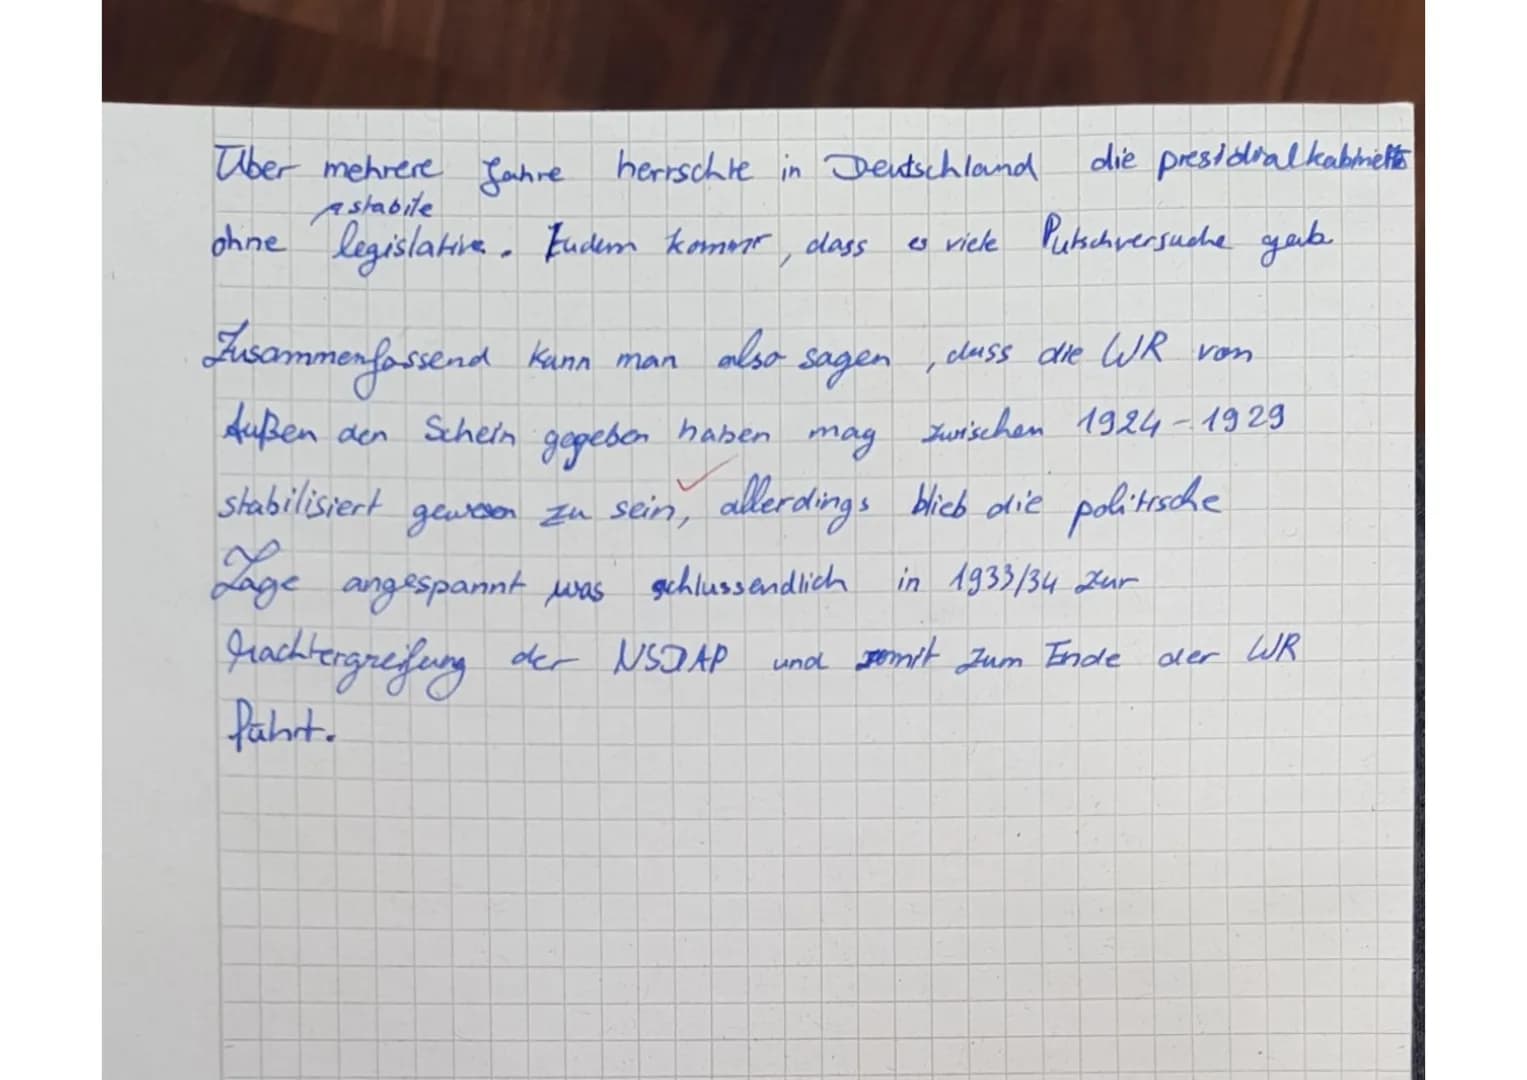 Über mehrere Jahre herrschte in Deutschland die presidialkabinetts
stabile
ohne legislative. Zudem kommt, dass es viele Putschversuche gab
Zusammenfassend kann man also sagen, dass die WR von
Außen den Schein gegeben haben mag zwischen 1924-1929
stabilisiert gewesen zu sein, allerdings blieb die politische
Lage angespannt was schlussendlich in 1933/34 zur
Machtergreifung der NSDAP und somit zum Ende der WR
führt.